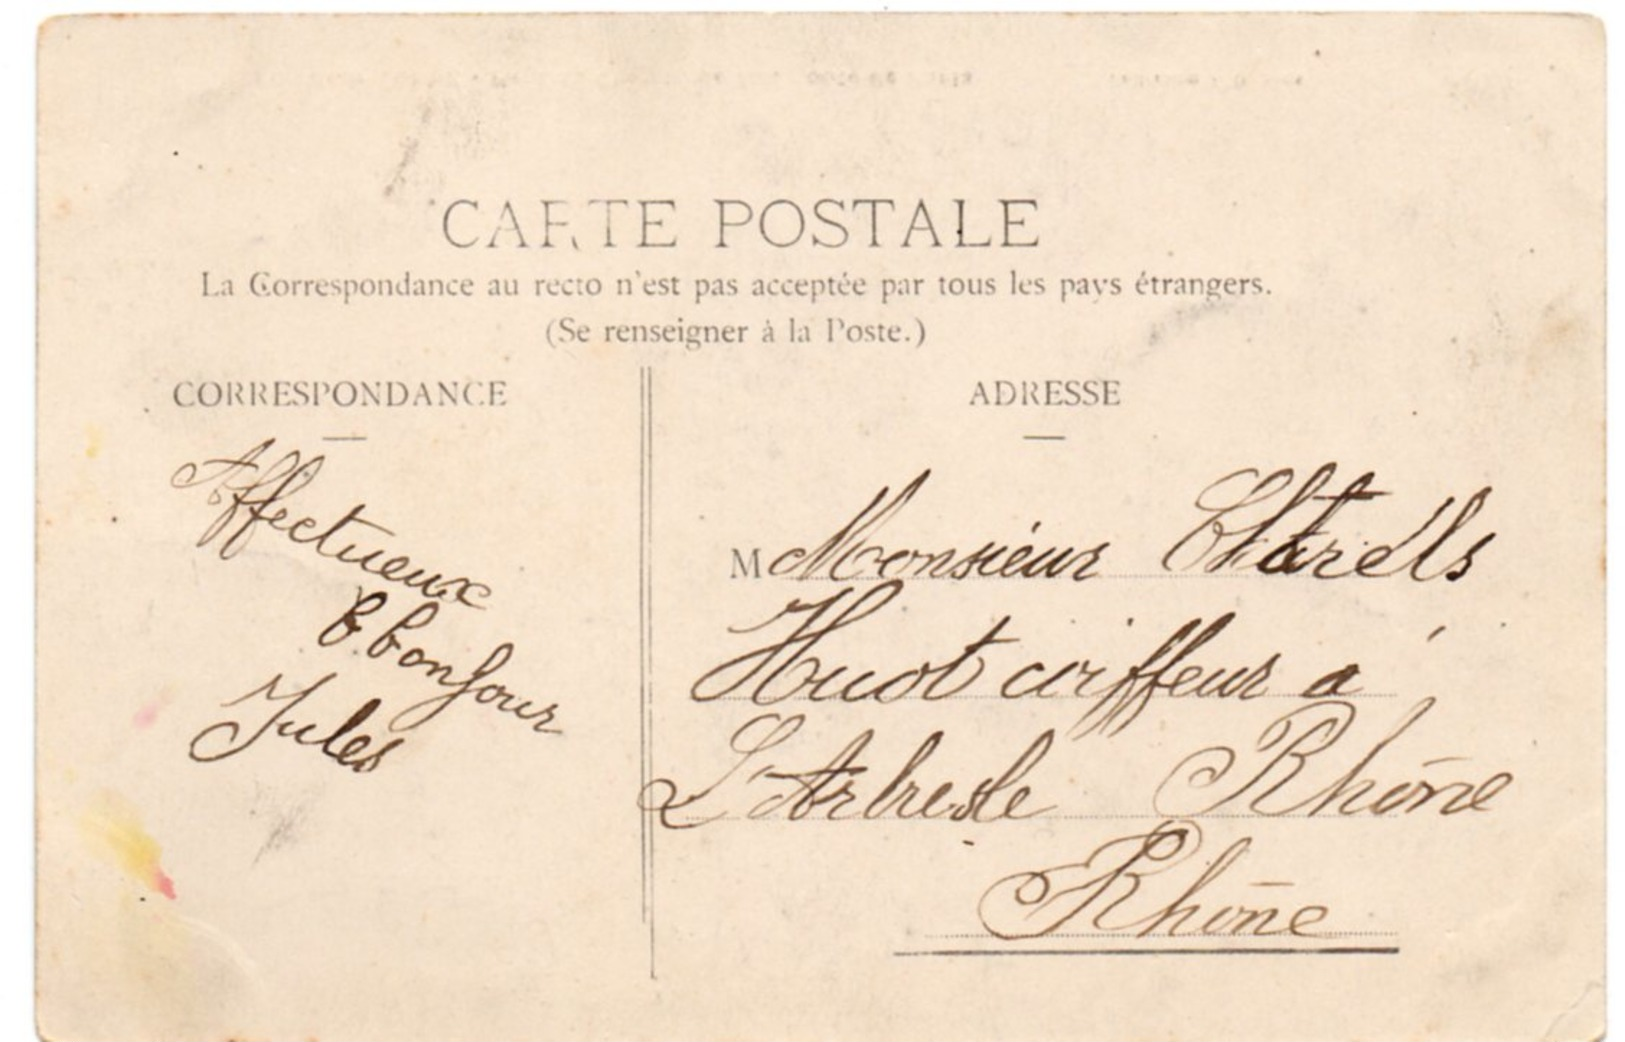 CARTE POSTALE
La Correspondance au recto n'est pas acceptée par tous les pays étrangers.
(Se renseigner à la Poste.)
CORRESPONDANCE
Affectueux
B. bonjour
Jules
ADRESSE
M Monsieur
Huot coiffeur à
L'Arbresle Rhône
Rhône